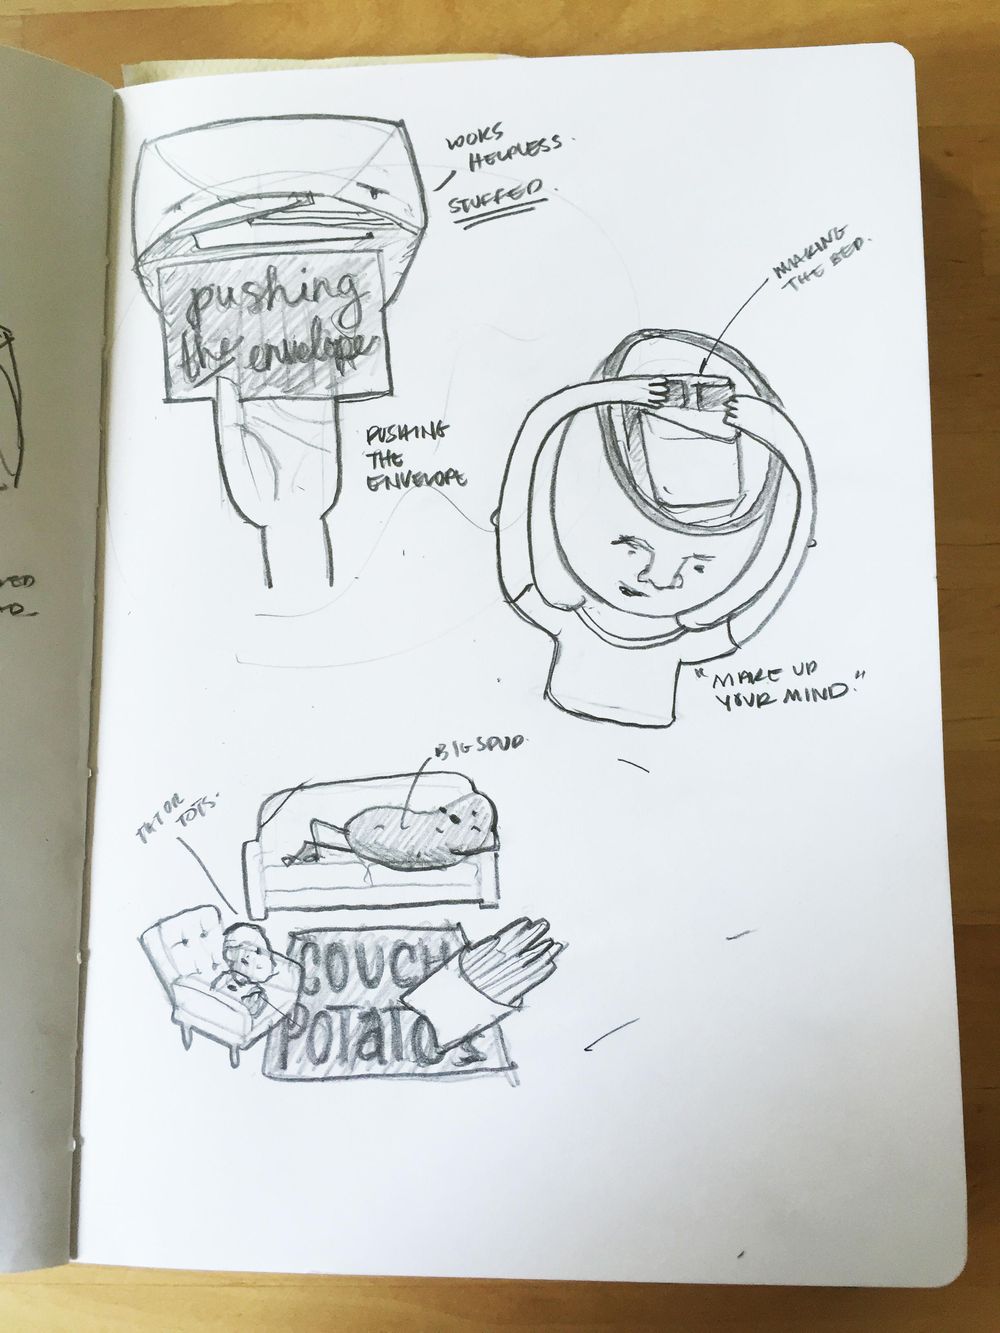 LOOKS
HELPLESS.
STUFFED.
pushing
the envelope
PUSHING
THE
ENVELOPE
MAKING
THE BED.
"MAKE UP
YOUR MIND."
BIG SPUD.
TATOR
TOTS.
COUCH
POTATOES